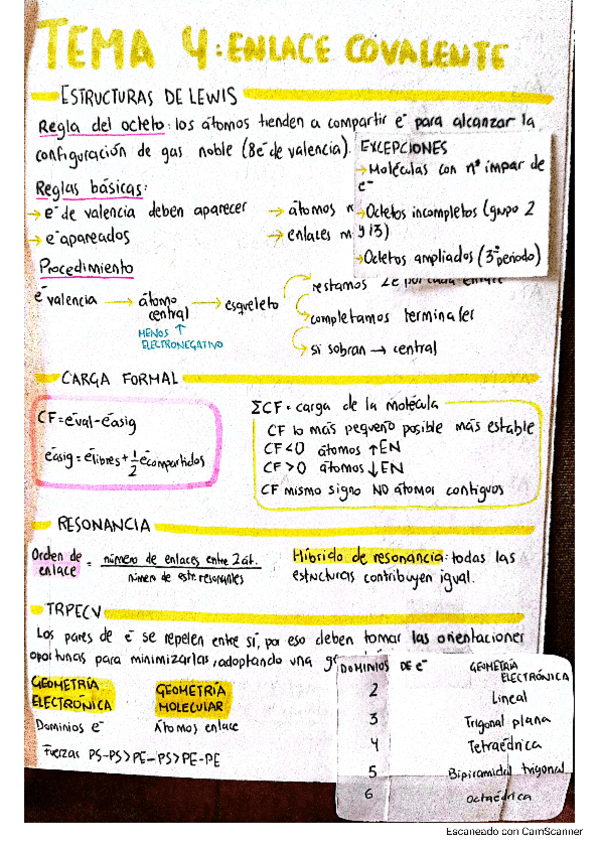 TEMA 4: ENLACE COVALENTE
ESTRUCTURAS DE LEWIS
Regla del octeto: los átomos tienden a compartir e⁻ para alcanzar la
configuración de gas noble (8e⁻ de valencia).
Reglas básicas:
→ e⁻ de valencia deben aparecer → átomos
→ e⁻ apareados → enlaces
EXCEPCIONES
→ Moléculas con nº impar de
e⁻
→ Octetos incompletos (grupo 2
y 13)
→ Octetos ampliados (3º periodo)
Procedimiento
e⁻ valencia → átomo central → esqueleto
MENOS ↑
ELECTRONEGATIVO
restamos 2e⁻ por cada enlace
completamos terminales
si sobran → central
CARGA FORMAL
CF = e⁻val - e⁻asig
e⁻asig = e⁻libres + 1/2 e⁻compartidos
ΣCF = carga de la molécula
CF lo más pequeño posible más estable
CF<0 átomos ↑EN
CF>0 átomos ↓EN
CF mismo signo NO átomos contiguos
RESONANCIA
Orden de enlace = número de enlaces entre 2 át. / número de estr. resonantes
Híbrido de resonancia: todas las
estructuras contribuyen igual.
TRPECV
Los pares de e⁻ se repelen entre sí, por eso deben tomar las orientaciones
oportunas para minimizarlas, adoptando una
GEOMETRÍA ELECTRÓNICA
Dominios e⁻
GEOMETRÍA MOLECULAR
Átomos enlace
Fuerzas PS-PS>PE-PS>PE-PE
DOMINIOS DE e⁻ GEOMETRÍA ELECTRÓNICA
2 Lineal
3 Trigonal plana
4 Tetraédrica
5 Bipiramidal trigonal
6 Octaédrica
Escaneado con CamScanner